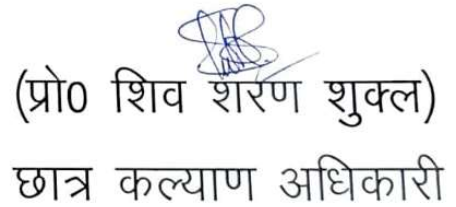 (प्रो0 शिव शरण शुक्ल)
छात्र कल्याण अधिकारी